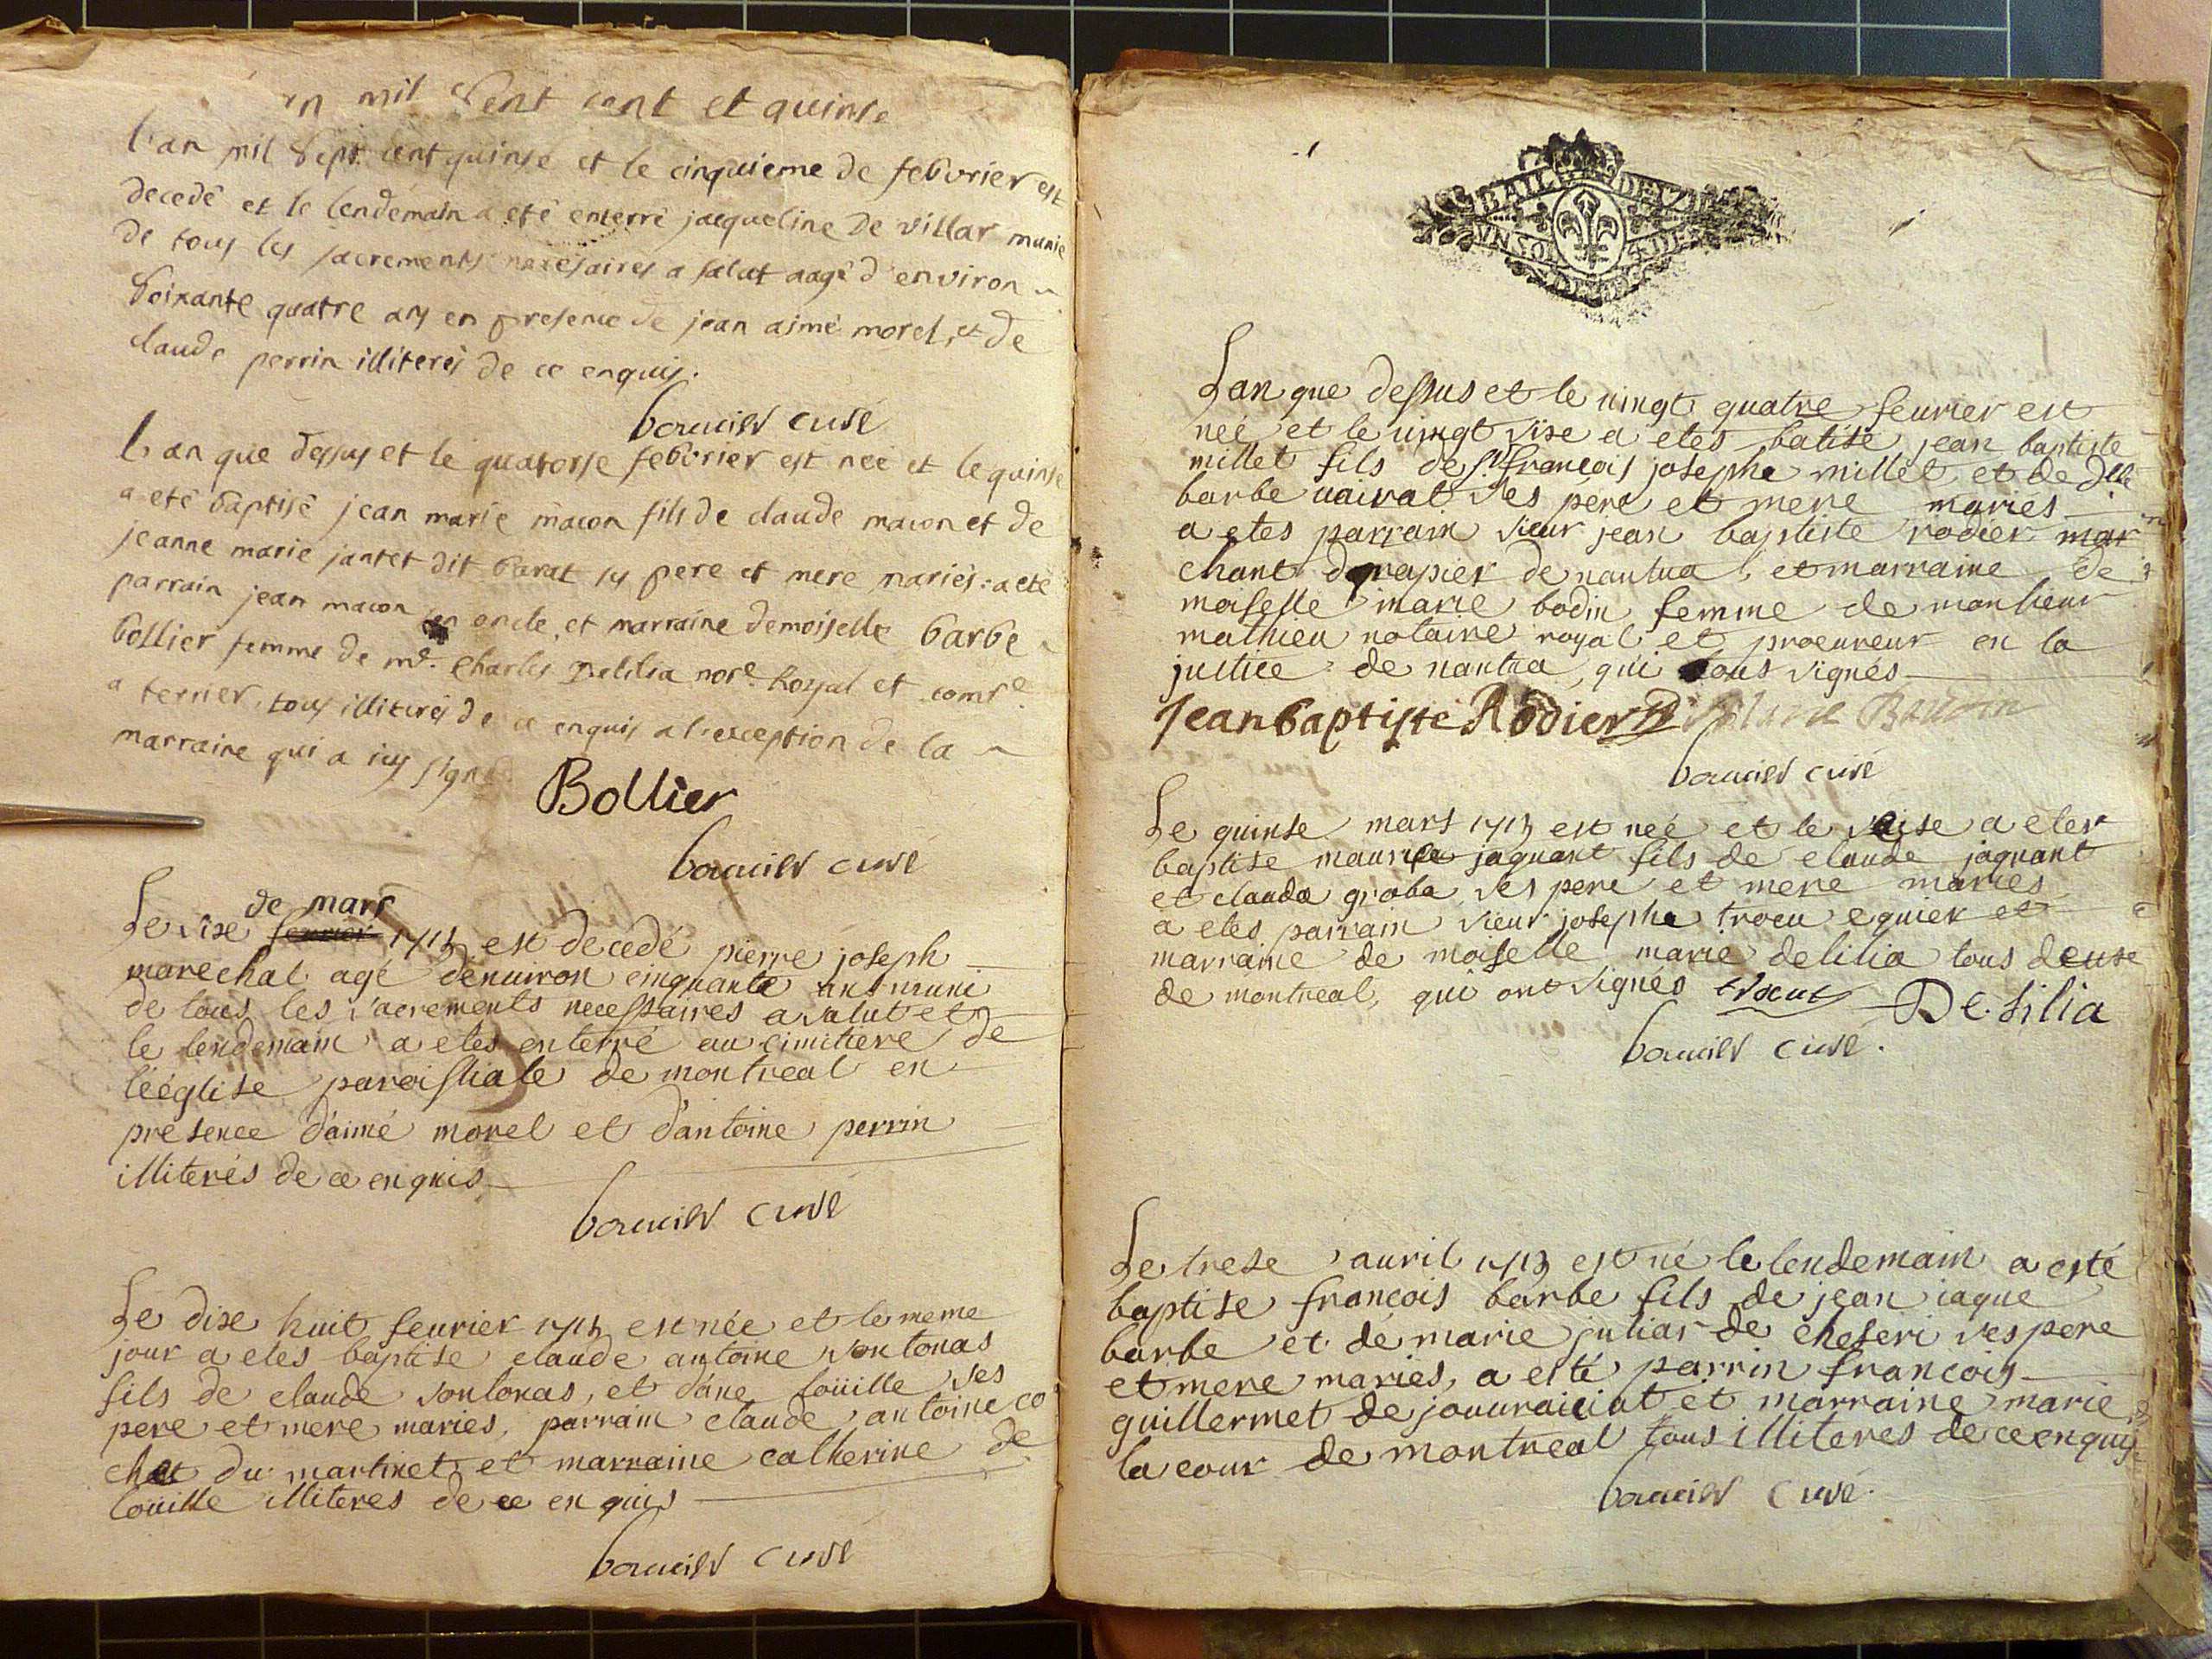 mil sept cent et quinse
l'an mil sept cent quinse et le cinquieme de febvrier est
decedé et le lendemain a eté enterré jacqueline de villar munie
de tous les sacrements necesaires a salut aagé d'environ
soixante quatre ans en presence de jean aimé morel, et de
claude perrin illiterés de ce enquis.
curé
l'an que dessus et le quatorse febvrier est neé et le quinse
a eté baptisé jean marie macon fils de claude macon et de
jeanne marie jantet dit ses pere et mere mariés: a eté
parrain jean macon son oncle, et marraine demoiselle barbe
bollier femme de me. charles Delilia nore. Royal et comre.
a terrier, tous illiterés de ce enquis a l'exception de la
marraine qui a icy signé
Bollier
curé
de mars
Le sixe fevrier 1715 est decedé pierre joseph
marechal agé denuiron cinquante ans muni
de tous les sacrements necessaires a salut et
le lendemain a etes enterré au cimitiere de
léeglise paroissiale de montreal en
presence d'aimé morel et d'antoine perrin
illiterés de ce enquis
curé
Le dixe huit feurier 1715 est née et le meme
jour a etes baptise claude antoine sontonas
fils de claude sontonas, et d'ane loüille ses
pere et mere maries, parrain claude antoine co
chet du martinet et marraine catherine de
loüille illiteres de ce enquis
curé
BAIL DEVX
VN SOL
Lan que dessus et le uingt quatre feurier est
neé et le uingt sixe a etes batise jean baptiste
millet fils de sr francois josephe millet et de dlle
barbe uairat ses pere et mere mariés
a etes parrain sieur jean baptiste rodier mar
chant drapier de nantua, et marraine de
moiselle marie bodin femme de monsieur
mathieu notaire royal et procureur en la
justice de nantua, qui sous signés
Jean baptiste Rodier Marie Baudin
curé
Le quinse mars 1715 est neé et le seise a etes
baptise maurice jaquant fils de claude jaquant
et clauda groba ses pere et mere maries
a etes parrain sieur josephe trocu equier et
marraine de moiselle marie delilia tous deuse
de montreal, qui ont signés trocut De. lilia
curé.
Le trese auril 1715 est né le lendemain a esté
baptise francois barbe fils de jean iaque
barbe et de marie juliar de cheseri ses pere
et mere maries, a esté parrin francois
guillermet de et marraine marie
la cour de montreal tous illiteres de ce enquis
curé.